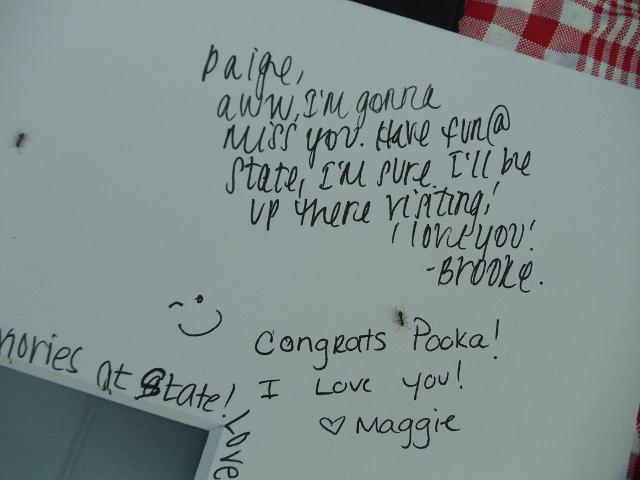 Paige,
aww, I'm gonna
miss you. Have fun @
State, I'm sure I'll be
up there visiting!
I love you!
-Brooke.
Congrats Pooka!
I Love you!
♡ Maggie
mories at State!
Love